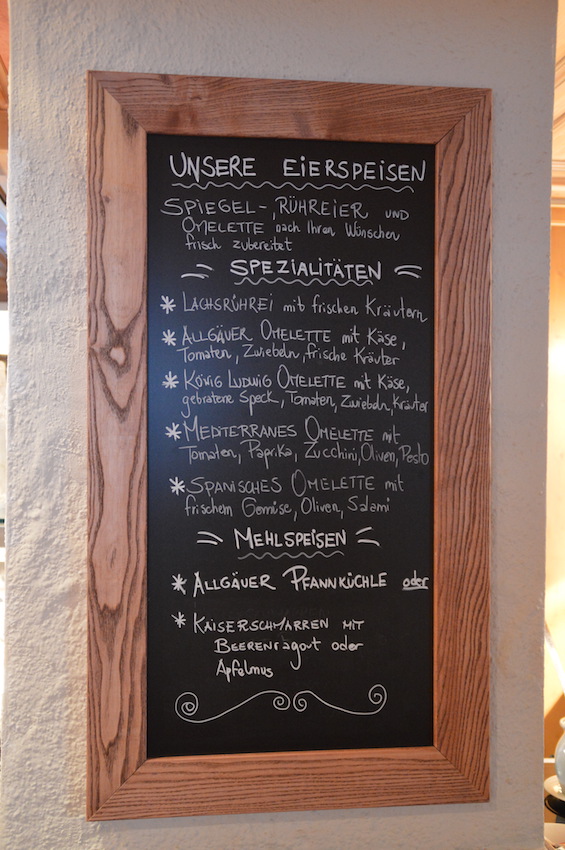 UNSERE EIERSPEISEN
SPIEGEL-, RÜHREIER UND
OMELETTE nach Ihren Wünschen
frisch zubereitet
SPEZIALITÄTEN
* LACHSRÜHREI mit frischen Kräutern
* ALLGÄUER OMELETTE mit Käse,
Tomaten, Zwiebeln, frische Kräuter
* KÖNIG LUDWIG OMELETTE mit Käse,
gebratene Speck, Tomaten, Zwiebeln, Kräuter
* MEDITERRANES OMELETTE mit
Tomaten, Paprika, Zucchini, Oliven, Pesto
* SPANISCHES OMELETTE mit
frischem Gemüse, Oliven, Salami
MEHLSPEISEN
* ALLGÄUER PFANNKÜCHLE oder
* KAISERSCHMARREN MIT
BEERENragout oder
Apfelmus